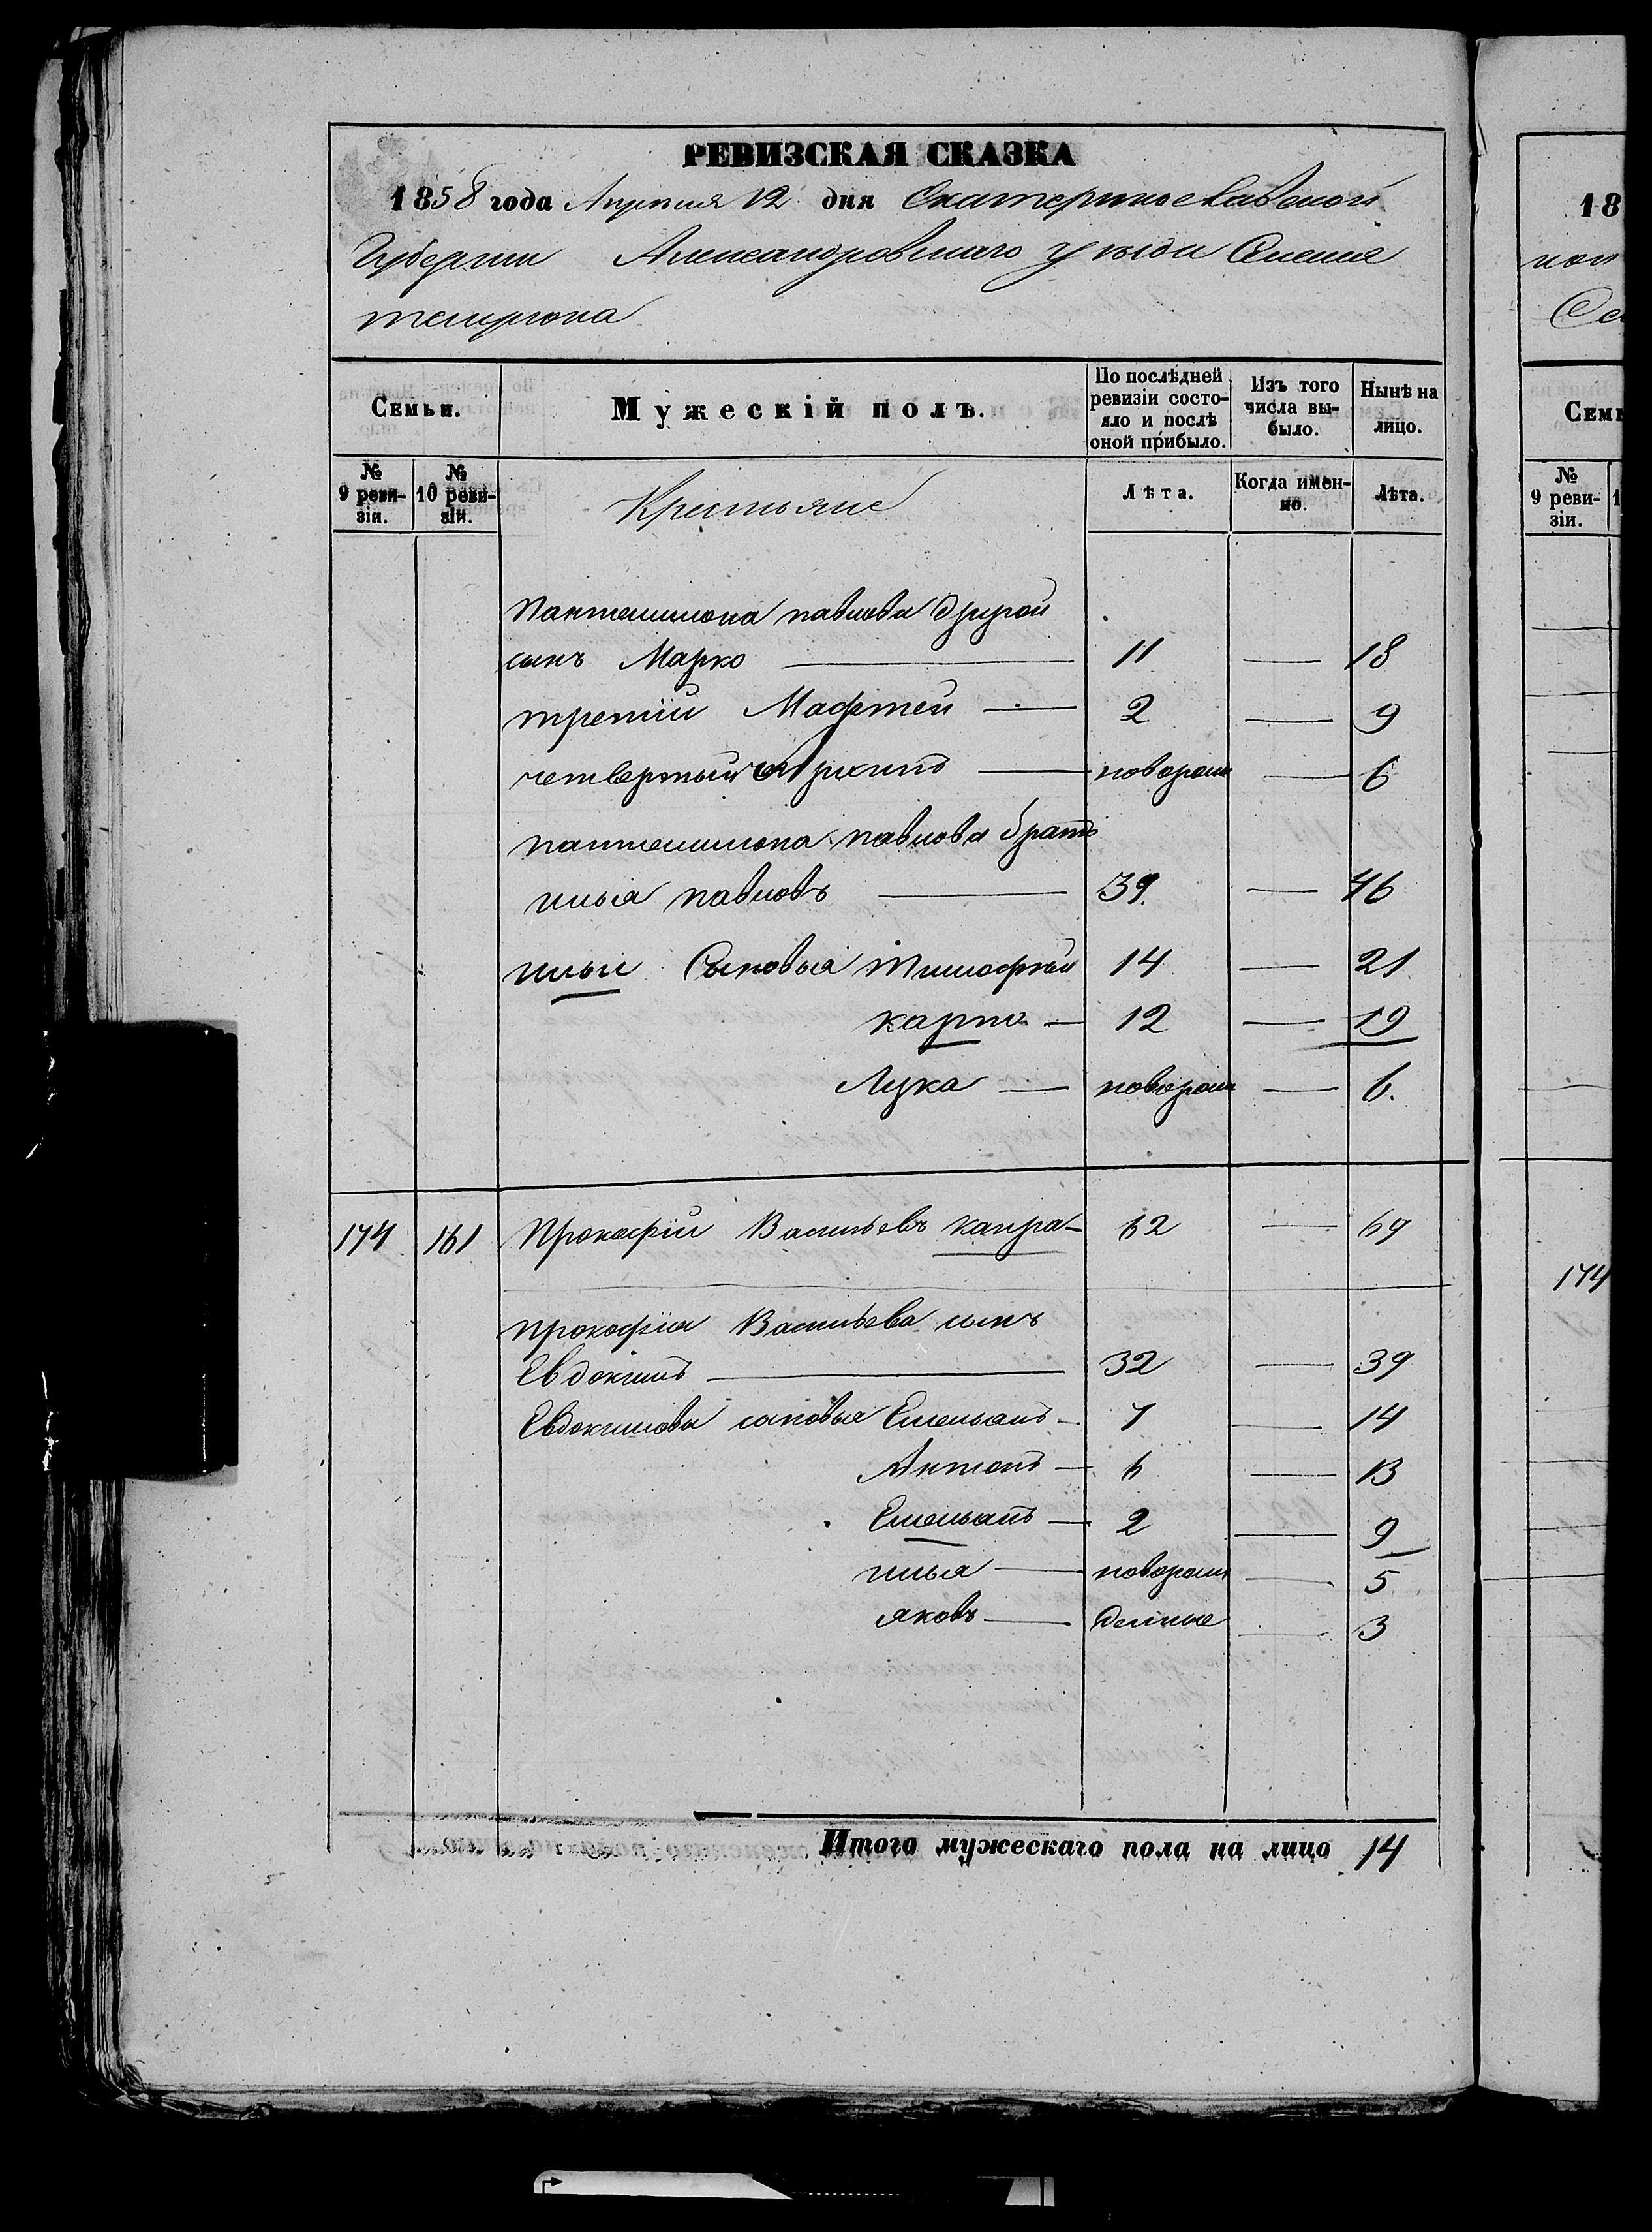 РЕВИЗСКАЯ СКАЗКА
1858 года Апреля 12 дня Екатеринославской
Губернии Александровскаго уезда Селенія
темрюка
Семьи.
Мужескій полъ.
По послѣдней ревизіи состо-
яло и послѣ оной прибыло.
Изъ того числа вы-
было.
Нынѣ на лицо.
№ 9 реви-
зіи.
№ 10 реви-
зіи.
Крестьяне
Лѣта.
Когда имен-
но.
Лѣта.
Пантелимона павлова другой
сынъ Марко 11 — 18
третій Мафтей — 2 — 9
четвертый Архипъ — новорож — 6
пантелимона павлова братъ
илья павловъ 39 — 46
ильи Сыновья Тимофей 14 — 21
карпъ — 12 — 19
Лука — новорож — 6.
174 161 Прокофій Васильевъ капра- 62 — 69
прокофія Васильева сынъ
Евдокимъ — 32 — 39
Евдокимова сыновья Емельянъ — 7 — 14
Антонъ — 6 — 13
Емельянъ — 2 — 9
илья — новорож — 5
яковъ — денные — 3
Итого мужескаго пола на лицо 14
18
Семь
№ 9 реви-
зіи.
174